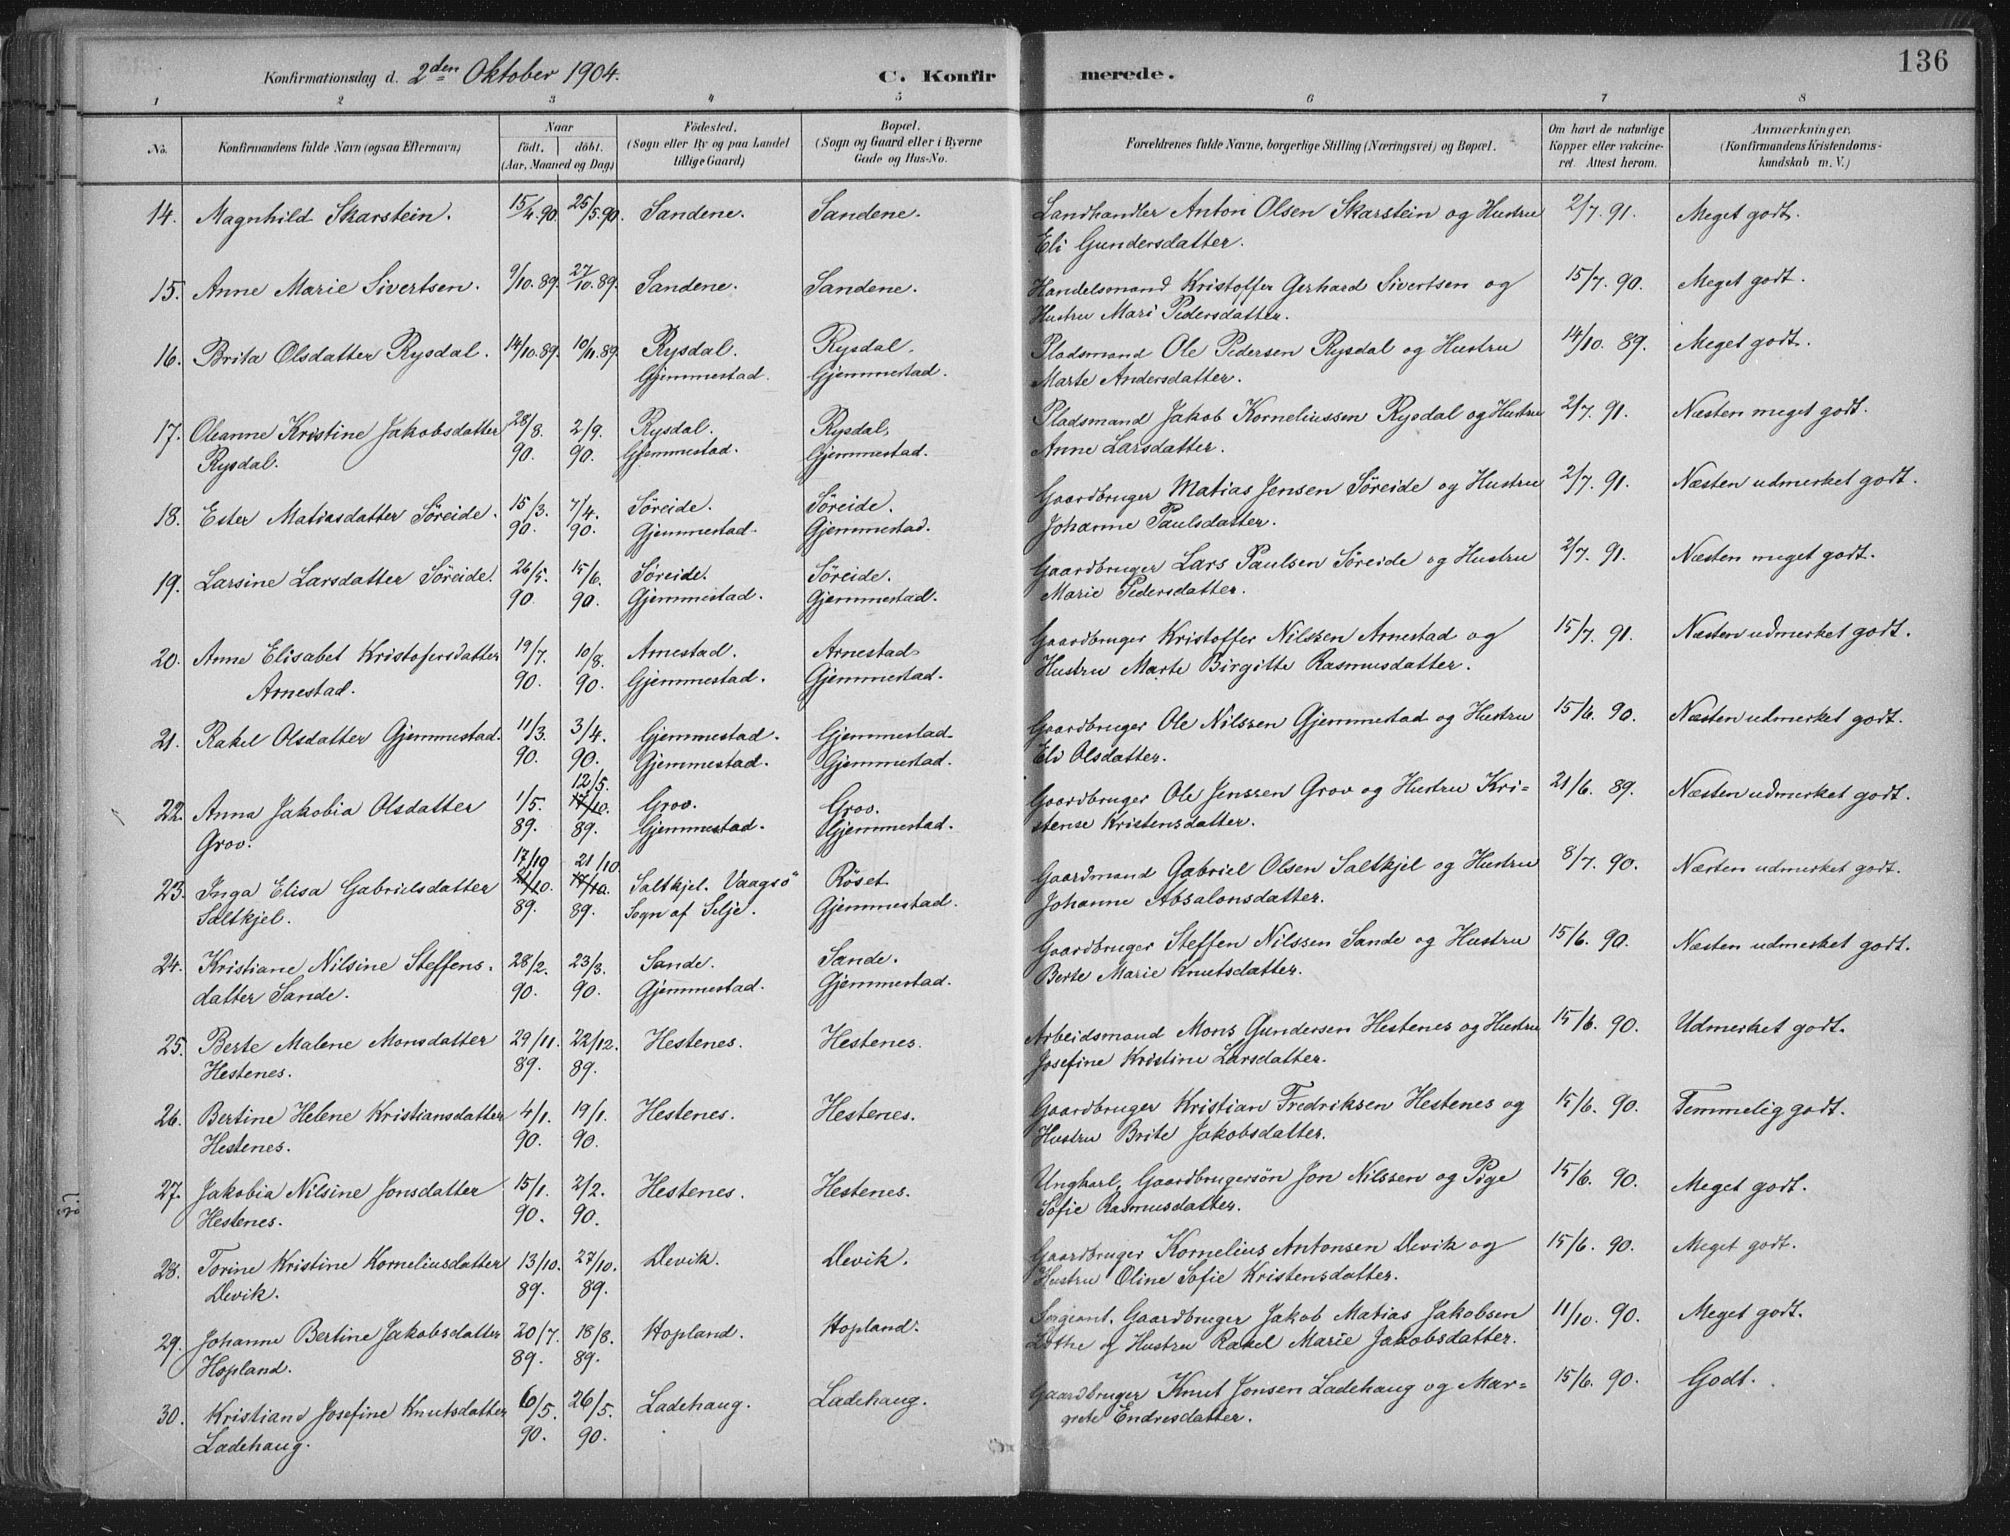 136
Konfirmationsdag d. 2den Oktober 1904. C. Konfirmerede.
1 2 3 4 5 6 7 8
No. Konfirmandens fulde Navn (ogsaa Efternavn) Naar født. døbt. (Aar, Maaned og Dag) Fødested. (Sogn eller By og paa Landet tillige Gaard) Bopæl. (Sogn og Gaard eller i Byerne Gade og Hus-No. Forældrenes fulde Navne, borgerlige Stilling (Næringsvei) og Bopæl. Om havt de naturlige Kopper eller vakcineret. Attest herom. Anmærkninger. (Konfirmandens Kristendomskundskab m. V.)
14. Magnhild Skarstein. 15/4.90 25/5.90. Sandene. Sandene. Landhandler Anton Olsen Skarstein og Hustru 2/7. 91. Meget godt.
Eli Gundersdatter.
15. Anne Marie Sivertsen. 9/10.89. 27/10.89. Sandene. Sandene. Handelsmand Kristoffer Gerhard Sivertsen og 15/7. 90. Meget godt.
Hustru Mari Pedersdatter.
16. Brita Olsdatter Rysdal. 14/10.89. 10/11.89. Rysdal. Rysdal. Pladsmand Ole Pedersen Rysdal og Hustru 14/10. 89. Meget godt.
Gjemmestad. Gjemmestad. Marte Andersdatter.
17. Oleanne Kristine Jakobsdatter 28/8. 2/9. Rysdal. Rysdal. Pladsmand Jakob Korneliussen Rysdal og Hustru 2/7. 91. Næsten meget godt.
Rysdal. 90. 90. Gjemmestad. Gjemmestad. Anne Larsdatter.
18. Ester Matiasdatter Søreide. 15/3. 7/4. Søreide. Søreide. Gaardbruger Matias Jensen Søreide og Hustru 2/7. 91. Næsten udmerket godt.
90. 90. Gjemmestad. Gjemmestad. Johanne Paulsdatter.
19. Larsine Larsdatter Søreide. 26/5. 15/6. Søreide. Søreide. Gaardbruger Lars Paulsen Søreide og Hustru 2/7. 91. Næsten meget godt.
90. 90. Gjemmestad. Gjemmestad. Marie Pedersdatter.
20. Anne Elisabet Kristofersdatter 19/7. 10/8. Arnestad. Arnestad. Gaardbruger Kristoffer Nilssen Arnestad og 15/7. 91. Næsten udmerket godt.
Arnestad. 90. 90. Gjemmestad. Gjemmestad. Hustru Marte Birgitte Rasmusdatter.
21. Rakel Olsdatter Gjemmestad. 11/3. 3/4. Gjemmestad. Gjemmestad. Gaardbruger Ole Nilssen Gjemmestad og Hustru 15/6. 90. Næsten udmerket godt.
90. 90. Gjemmestad. Gjemmestad. Eli Olsdatter.
12/5.
22. Anna Jakobia Olsdatter 1/5. 17/10. Grov. Grov. Gaardbruger Ole Jenssen Grov og Hustru Kri- 21/6. 89. Næsten udmerket godt.
Grov. 89. 89. Gjemmestad. Gjemmestad. stense Kristensdatter.
17/10 21/10
23. Inga Elisa Gabrielsdatter 21/10. 17/10. Saltkjel. Vaagsö Røset Gaardmand Gabriel Olsen Saltkjel og Hustru 8/7. 90. Næsten udmerket godt.
Saltkjel. 89. 89. Sogn af Selje. Gjemmestad. Johanne Absalonsdatter.
24. Kristiane Nilsine Steffens- 28/2. 23/3. Sande. Sande. Gaardbruger Steffen Nilssen Sande og Hustru 15/6. 90. Næsten udmerket godt.
datter Sande. 90. 90. Gjemmestad. Gjemmestad. Berte Marie Knutsdatter.
25. Berte Malene Monsdatter 29/11. 22/12. Hestenes. Hestenes. Arbeidsmand Mons Gundersen Hestenes og Hustru 15/6. 90. Udmerket godt.
Hestenes. 89. 89. Josefine Kristine Larsdatter.
26. Bertine Helene Kristiansdatter 4/1. 19/1. Hestenes. Hestenes. Gaardbruger Kristian Fredriksen Hestenes og 15/6. 90. Temmelig godt.
Hestenes. 90. 90. Hustru Brite Jakobsdatter.
27. Jakobia Nilsine Jonsdatter 15/1. 2/2. Hestenes. Hestenes. Ungkarl, Gaardbrugersøn Jon Nilssen og Pige 15/6. 90. Meget godt.
Hestenes. 90. 90. Sofie Rasmusdatter.
28. Torine Kristine Korneliusdatter 13/10. 27/10. Devik. Devik. Gaardbruger Kornelius Antonsen Devik og 15/6. 90. Meget godt.
Devik. 89. 89. Hustru Oline Sofie Kristensdatter.
29. Johanne Bertine Jakobsdatter 20/7. 18/8. Hopland. Hopland. Sergeant. Gaardbruger Jakob Matias Jakobsen 11/10. 90. Meget godt.
Hopland. 89. 89. Lothe og Hustru Rakel Marie Jakobsdatter.
30. Kristiane Josefine Knutsdatter 6/5. 26/5. Ladehaug. Ladehaug. Gaardbruger Knut Jonsen Ladehaug og Mar- 15/6. 90. Godt.
Ladehaug. 90. 90. grete Endresdatter.